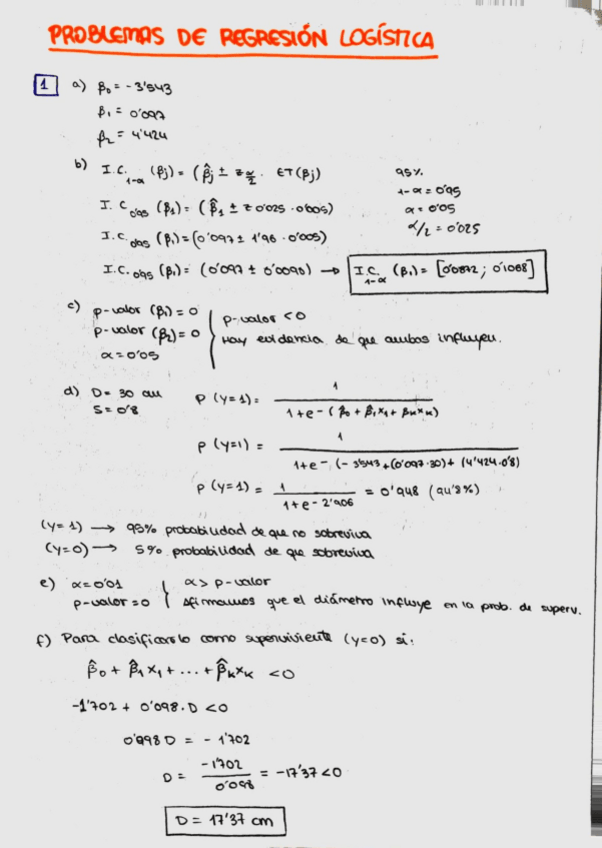 PROBLEMAS DE REGRESIÓN LOGÍSTICA
1 a) β₀ = -3'543
β₁ = 0'097
β₂ = 4'424
b) I.C. 1-α (βj) = (β̂j ± z α/2 · ET(βj)
95%
1-α = 0'95
I.C 0'95 (β₁) = (β̂₁ ± z 0'025 · 0'005)
α = 0'05
α/2 = 0'025
I.C. 0'95 (β₁) = (0'097 ± 1'96 · 0'005)
I.C. 0'95 (β₁) = (0'097 ± 0'0098) → I.C. 1-α (β₁) = [0'0872 ; 0'1068]
c) p-valor (β₁) = 0
p-valor (β₂) = 0
α = 0'05
p-valor < 0
Hay evidencia de que ambos influyen.
d) D = 30 cm
S = 0'8
P (y=1) = 1 / 1 + e - (β₀ + β₁x₁ + βₖxₖ)
P (y=1) = 1 / 1+e - (-3'543 + (0'097·30) + (4'424·0'8)
P (y=1) = 1 / 1+e - 2'906 = 0'948 (94'8%)
(y=1) → 95% probabilidad de que no sobreviva
(y=0) → 5% probabilidad de que sobreviva
e) α = 0'01
p-valor = 0
α > p-valor
Afirmamos que el diámetro influye en la prob. de superv.
f) Para clasificarlo como superviviente (y=0) si:
β̂₀ + β̂₁x₁ + ... + β̂ₖxₖ < 0
-1'702 + 0'098·D < 0
0'098 D = -1'702
D = -1'702 / 0'098 = -17'37 < 0
D = 17'37 cm